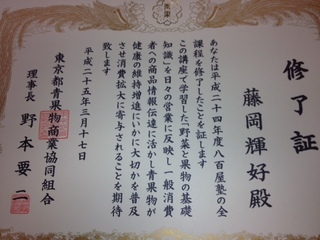 修了証
藤岡輝好殿
あなたは平成二十四年度八百屋塾の全
課程を修了したことを証します
この講座で学習した「野菜と果物の基礎
知識」を日々の営業に反映し一般消費
者への商品情報伝達に活かし青果物が
健康の維持増進にいかに大切かを普及
させ消費拡大に寄与されることを期待
致します
平成二十五年三月十七日
東京都青果物商業協同組合
理事長 野本要二